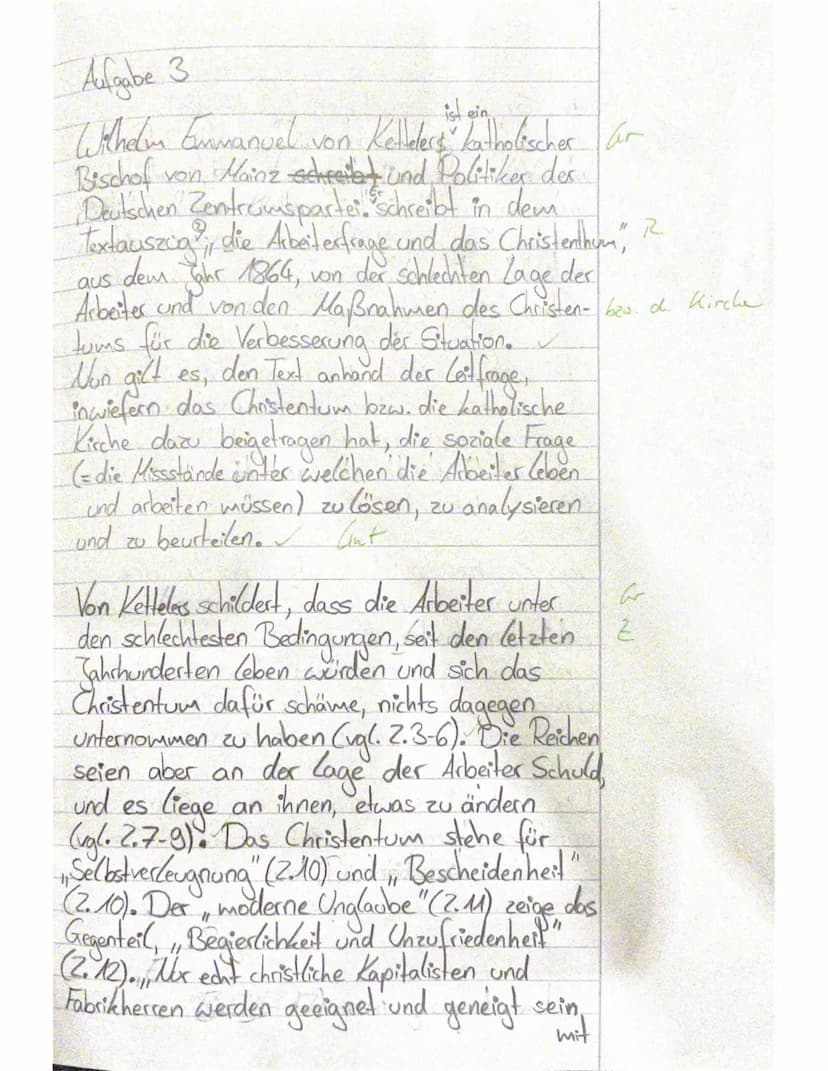 Aufgabe 3
ist ein
Wilhelm Emmanuel von Kettelers katholischer Gr
Bischof von Mainz schreibt und Politiker der
Er
Deutschen Zentrumspartei. schreibt in dem
Textauszug „die Arbeiterfrage und das Christenthum", R
aus dem Jahr 1864, von der schlechten Lage der
Arbeiter und von den Maßnahmen des Christen- bzw. d. Kirche
tums für die Verbesserung der Situation. ✓
Nun gilt es, den Text anhand der Leitfrage,
inwiefern das Christentum bzw. die katholische
Kirche dazu beigetragen hat, die soziale Frage
(= die Missstände unter welchen die Arbeiter leben
und arbeiten müssen) zu lösen, zu analysieren
und zu beurteilen. ✓ Gut
Von Kettelers schildert, dass die Arbeiter unter Gr
den schlechtesten Bedingungen, seit den letzten Z
Jahrhunderten leben würden und sich das
Christentum dafür schäme, nichts dagegen
unternommen zu haben (vgl. Z.3-6). Die Reichen
seien aber an der Lage der Arbeiter Schuld,
und es liege an ihnen, etwas zu ändern
(vgl. Z.7-9). Das Christentum stehe für
„Selbstverleugnung" (Z.10) und „Bescheidenheit"
(Z.10). Der „moderne Unglaube" (Z.11) zeige das
Gegenteil, „Begierlichkeit und Unzufriedenheit"
(Z.12). „Nur echt christliche Kapitalisten und
Fabrikherren werden geeignet und geneigt sein,
mit